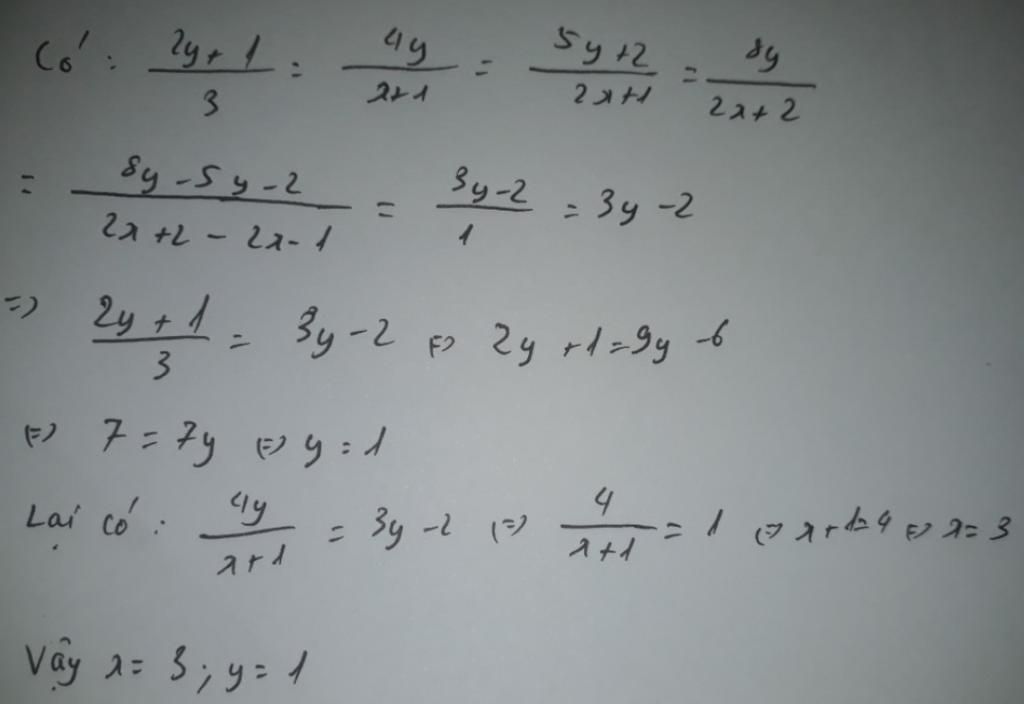 Có: (2y+1)/3 = 4y/(x+1) = (5y+2)/(2x+1) = 8y/(2x+2)
= (8y-5y-2)/(2x+2-2x-1) = (3y-2)/1 = 3y-2
=> (2y+1)/3 = 3y-2 <=> 2y+1=9y-6
<=> 7=7y <=> y=1
Lại có: 4y/(x+1) = 3y-2 <=> 4/(x+1) = 1 <=> x+1=4 <=> x=3
Vậy x=3; y=1